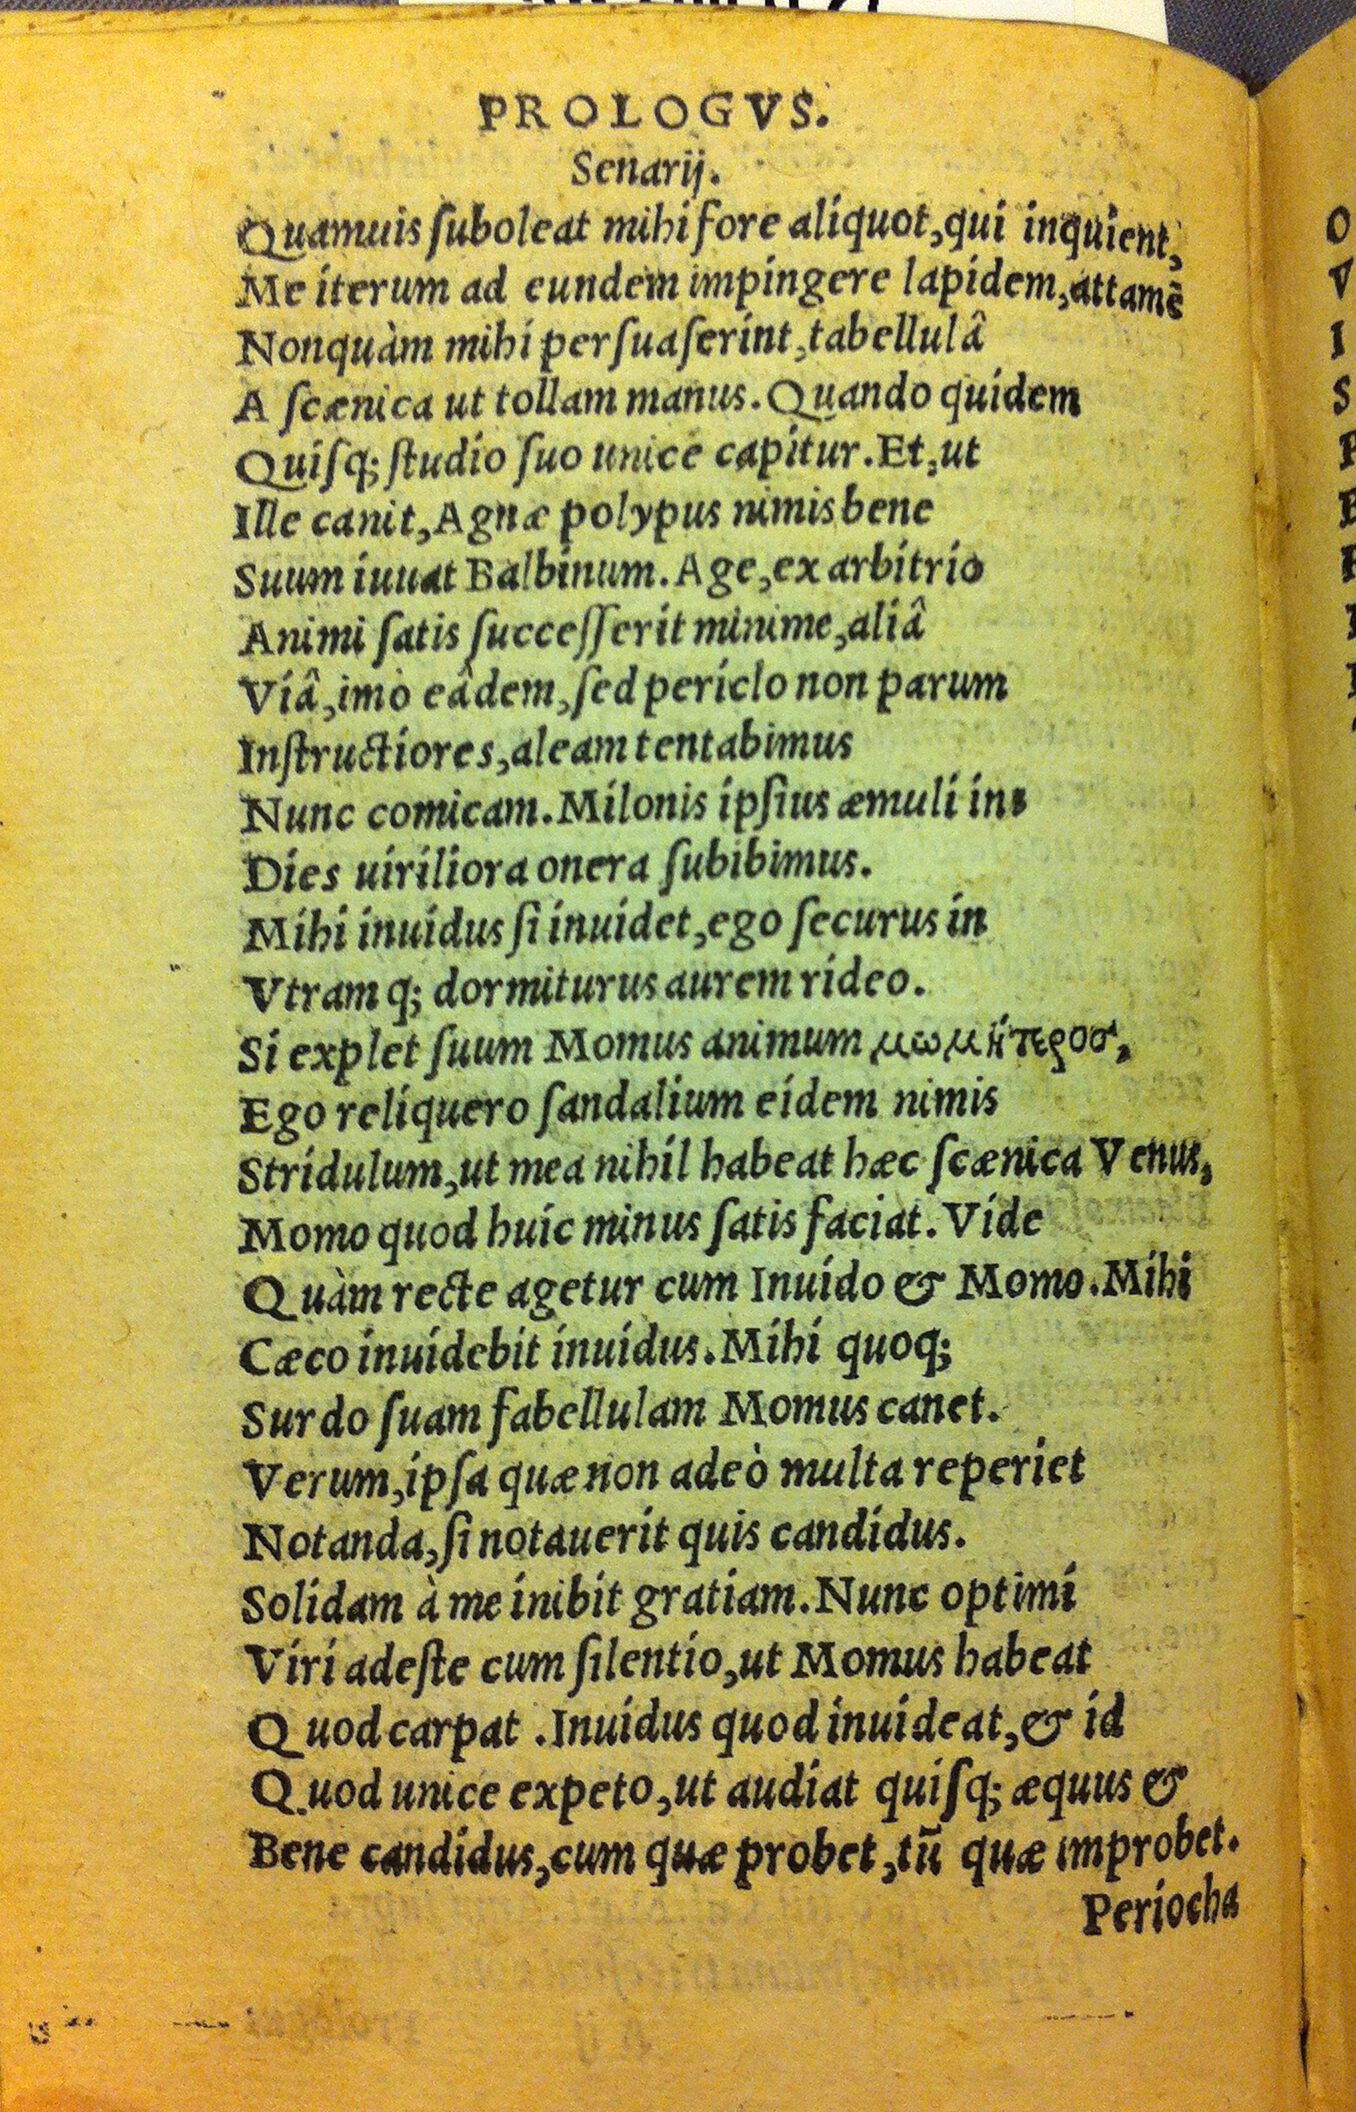 PROLOGVS.
Senarij.
Quamuis ſuboleat mihi fore aliquot, qui inquient,
Me iterum ad eundem impingere lapidem, attamẽ
Nonquàm mihi perſuaſerint, tabellulâ
A ſcænica ut tollam manus. Quando quidem
Quiſq; ſtudio ſuo unice capitur. Et, ut
Ille canit, Agnæ polypus nimis bene
Suum iuuat Balbinum. Age, ex arbitrio
Animi ſatis ſucceſſerit minime, aliâ
Viâ, imò eâdem, ſed periclo non parum
Inſtructiores, aleam tentabimus
Nunc comicam. Milonis ipſius æmuli in-
Dies uiriliora onera ſubibimus.
Mihi inuidus ſi inuidet, ego ſecurus in
Vtramq; dormiturus aurem rideo.
Si explet ſuum Momus animum μωμήτεροσ,
Ego reliquero ſandalium eidem nimis
Stridulum, ut mea nihil habeat hæc ſcænica Venus,
Momo quod huic minus ſatis faciat. Vide
Quàm recte agetur cum Inuido & Momo. Mihi
Cæco inuidebit inuidus. Mihi quoq;
Surdo ſuam fabellulam Momus canet.
Verum, ipſa quæ non adeò multa reperiet
Notanda, ſi notauerit quis candidus.
Solidam à me inibit gratiam. Nunc optimi
Viri adeſte cum ſilentio, ut Momus habeat
Quod carpat. Inuidus quod inuideat, & id
Quod unice expeto, ut audiat quiſq; æquus &
Bene candidus, cum quæ probet, tũ quæ improbet.
Periocha
O
V
I
S
P